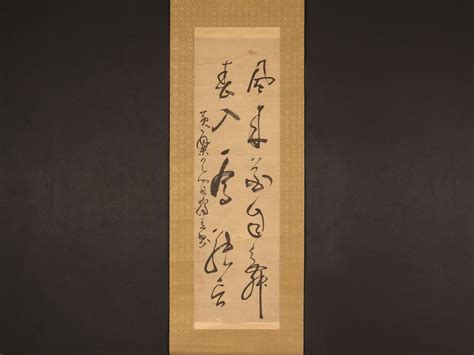 風来花自舞
春入鳥能言
黄檗